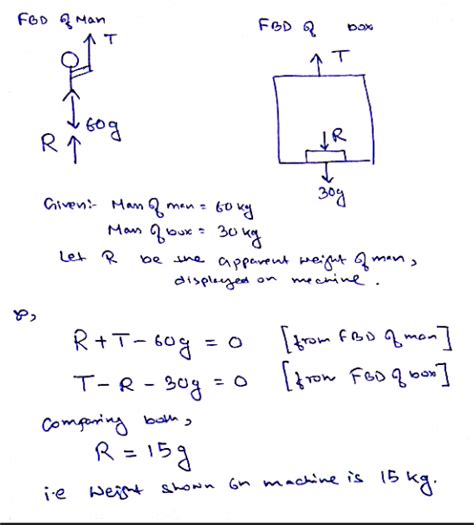 FBD of Man
T
60g
R
FBD of box
T
R
30g
Given:- Mass of man = 60 kg
Mass of box = 30 kg
Let R be the apparent weight of man,
displayed on machine.
So,
R + T - 60g = 0 [from FBD of man]
T - R - 30g = 0 [from FBD of box]
Comparing both,
R = 15g
i.e weight shown on machine is 15 kg.